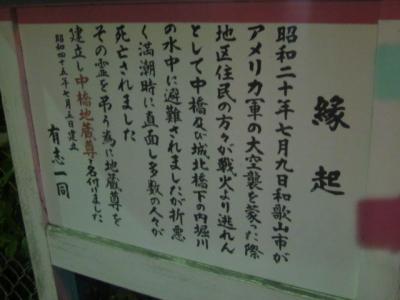 縁起
昭和二十年七月九日和歌山市が
アメリカ軍の大空襲を蒙った際
地区住民の方々が戦火より逃れん
として中橋及び城北橋下の内堀川
の水中に避難されましたが折悪
く満潮時に直面し多数の人々が
死亡されました
その霊を弔う為に地蔵尊を
建立し中橋地蔵尊と名付けました
昭和四十五年七月五日建立
有志一同